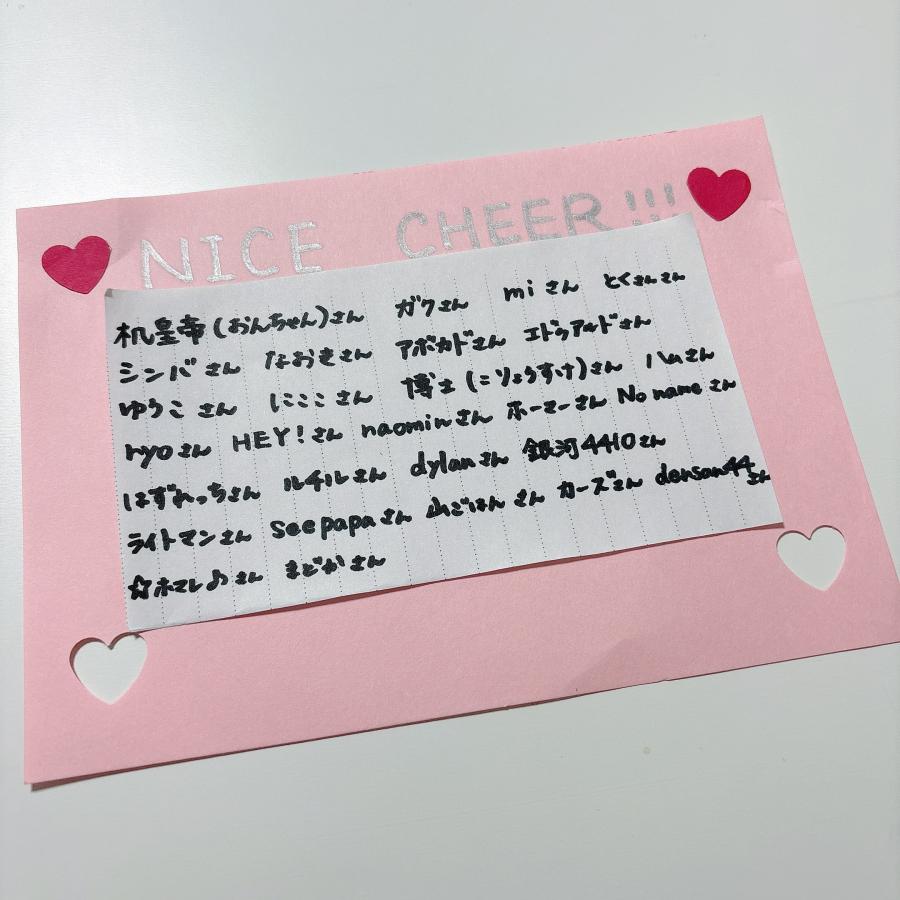 NICE CHEER!!!
机皇帝(おんちゃん)さん ガクさん miさん とくさんさん
シンバさん なおきさん アボカドさん エドゥアルドさん
ゆうこさん にここさん 博士(こりょうすけ)さん ハムさん
ryoさん HEY!さん naominさん ホーマーさん No nameさん
はずれっちさん ルチルさん dylanさん 銀河4410さん
ライトマンさん seepapaさん 山ごはんさん カーズさん densan44さん
☆ホマレ♪さん まどかさん